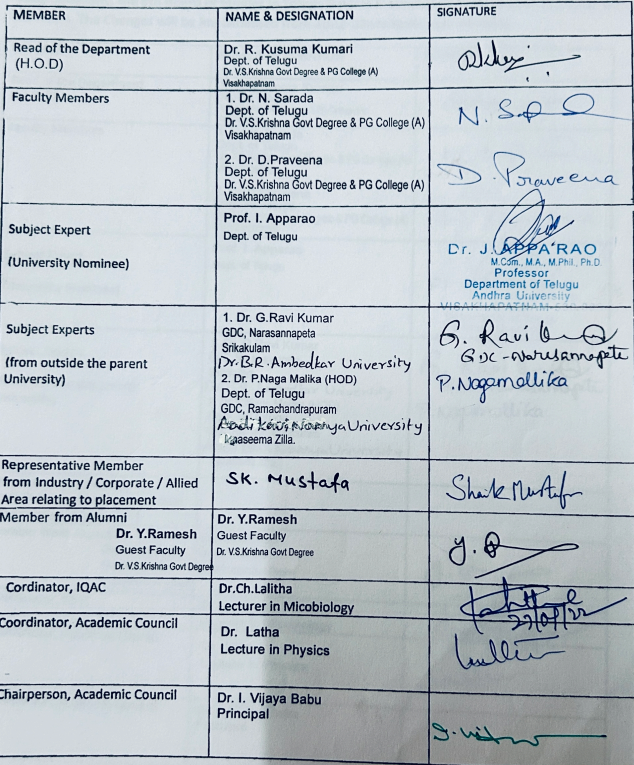 MEMBER NAME & DESIGNATION SIGNATURE
Read of the Department
(H.O.D)
Dr. R. Kusuma Kumari
Dept. of Telugu
Dr. V.S.Krishna Govt Degree & PG College (A)
Visakhapatnam
Faculty Members
1. Dr. N. Sarada
Dept. of Telugu
Dr. V.S.Krishna Govt Degree & PG College (A)
Visakhapatnam
N. S
2. Dr. D.Praveena
Dept. of Telugu
Dr. V.S.Krishna Govt Degree & PG College (A)
Visakhapatnam
D. Praveena
Subject Expert
(University Nominee)
Prof. I. Apparao
Dept. of Telugu
Dr. J. APPA RAO
M.Com., M.A., M.Phil., Ph.D.
Professor
Department of Telugu
Andhra University
VISAKHAPATNAM
Subject Experts
(from outside the parent
University)
1. Dr. G.Ravi Kumar
GDC, Narasannapeta
Srikakulam
Dr.B.R. Ambedkar University
2. Dr. P.Naga Malika (HOD)
Dept. of Telugu
GDC, Ramachandrapuram
University
Zilla.
G. Ravi
GDC - Narasannapeta
P. Nagamallika
Representative Member
from Industry / Corporate / Allied
Area relating to placement
SK. Mustafa
Shaik Mustafa
Member from Alumni
Dr. Y.Ramesh
Guest Faculty
Dr. V.S.Krishna Govt Degree
Dr. Y.Ramesh
Guest Faculty
Dr. V.S.Krishna Govt Degree
Y.
Cordinator, IQAC
Dr.Ch.Lalitha
Lecturer in Micobiology
Coordinator, Academic Council
Dr. Latha
Lecture in Physics
Chairperson, Academic Council
Dr. I. Vijaya Babu
Principal